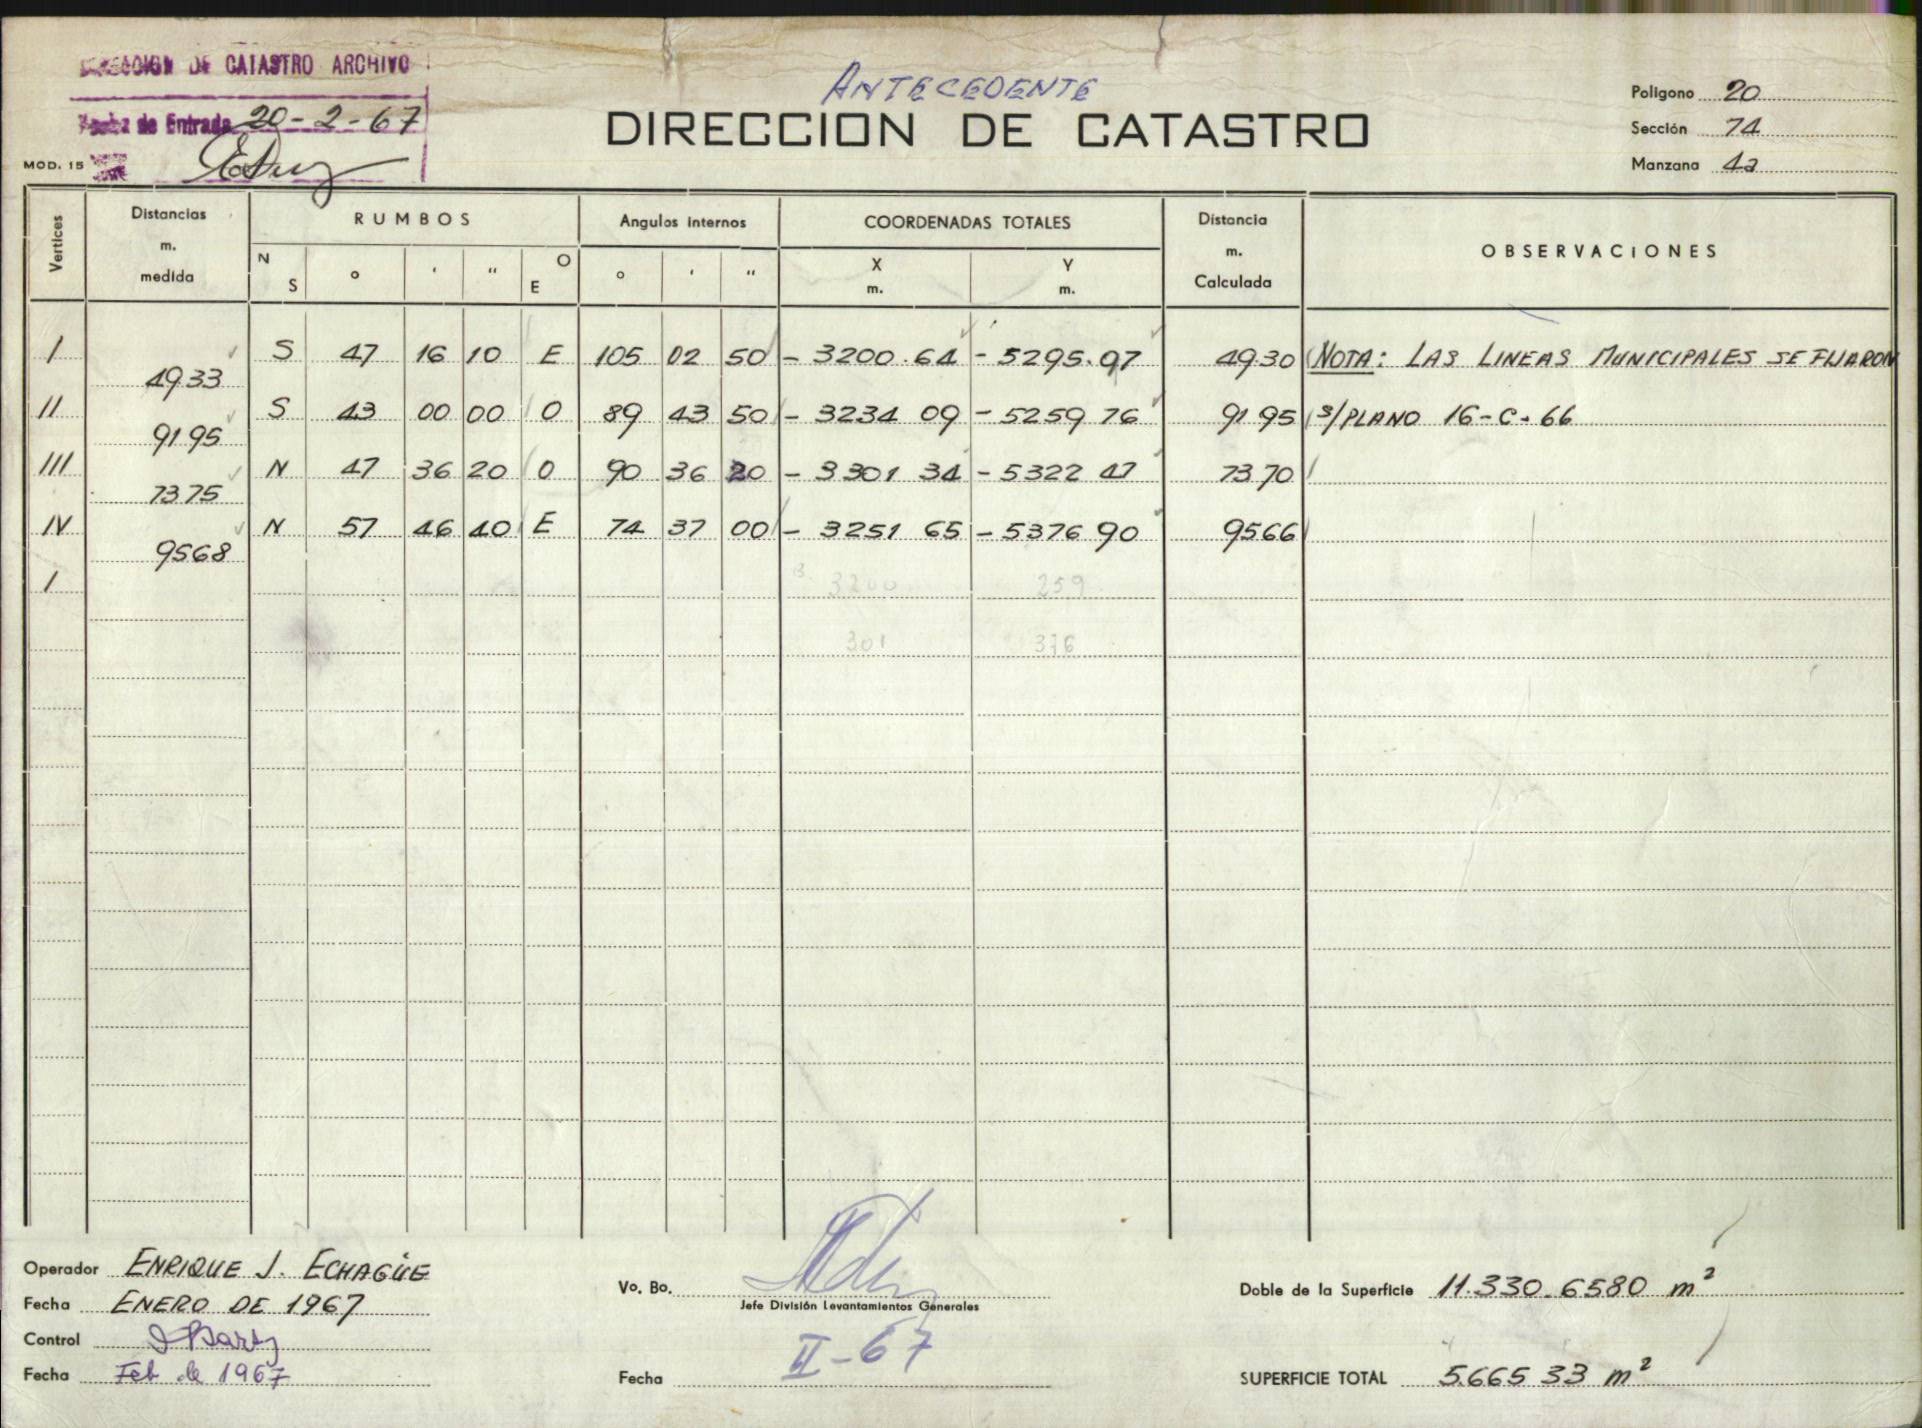 DIRECCION DE CATASTRO ARCHIVO
Fecha de Entrada 20-2-67
MOD. 15
ANTECEDENTE
DIRECCION DE CATASTRO
Poligono 20
Sección 74
Manzana 4a
Vertices
Distancias m. medida
RUMBOS
Angulos Internos
COORDENADAS TOTALES
Distancia m. Calculada
OBSERVACIONES
N S ° ' " O E
° ' "
X m. Y m.
I S 47 16 10 E 105 02 50 - 3200.64 - 5295.97 4930 NOTA: LAS LINEAS MUNICIPALES SE FIJARON
4933
II S 43 00 00 O 89 43 50 - 3234 09 - 5259 76 9195 s/PLANO 16-C-66
9195
III N 47 36 20 O 90 36 20 - 3301 34 - 5322 47 7370
7375
IV N 57 46 40 E 74 37 00 - 3251 65 - 5376 90 9566
9568
I 3200 259
301 376
Operador ENRIQUE J. ECHAGÜE
Fecha ENERO DE 1967
Control
Fecha Feb de 1967
Vo. Bo.
Jefe División Levantamientos Generales
Fecha II-67
Doble de la Superficie 11.330.6580 m²
SUPERFICIE TOTAL 5.665 33 m²